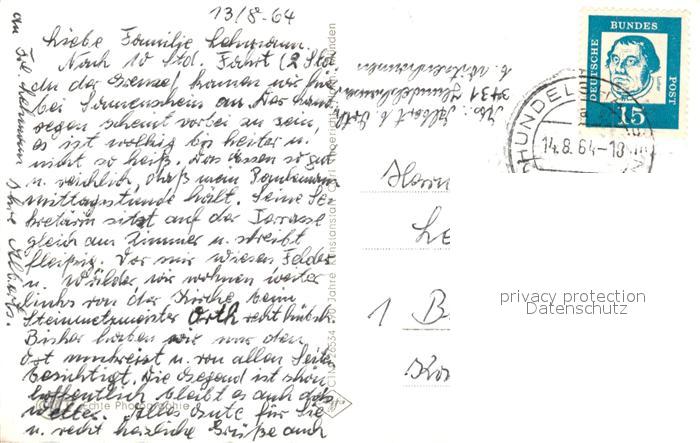 13/8-64
Liebe Familie Lehmann.
Nach 10 Std. Fahrt (2 Std.
an der Grenze) kamen wir hier
bei Sonnenschein an. Der
regen scheint vorbei zu sein,
es ist wolkig bis heiter u.
nicht so heiß. Das Essen so gut
u. reichlich, daß mein
Mittagsstunde hält. Seine Se-
kretärin sitzt auf der Terrasse
gleich am Zimmer u. schreibt
fleißig. Vor mir Wiesen Felder
u. Wälder, wir wohnen weiter
links von der Kirche beim
Steinmetzmeister Orth recht hübsch.
Bisher haben wir nur den
Ort umkreist u. von allen Seiten
besichtigt. Die Gegend ist schön
hoffentlich bleibt es auch das
Wetter. Alles Gute für Sie
u. recht herzliche Grüße auch
an Frl. Lehmann Ihre Alberts.
Echte Photographie
Abs. Albert b. Orth
Hundelshausen
b. Witzenhausen
DEUTSCHE
BUNDES
POST
Luther
15
HUNDEL
14.8.64-18
Herrn
Le
1 B
Ko
privacy protection
Datenschutz